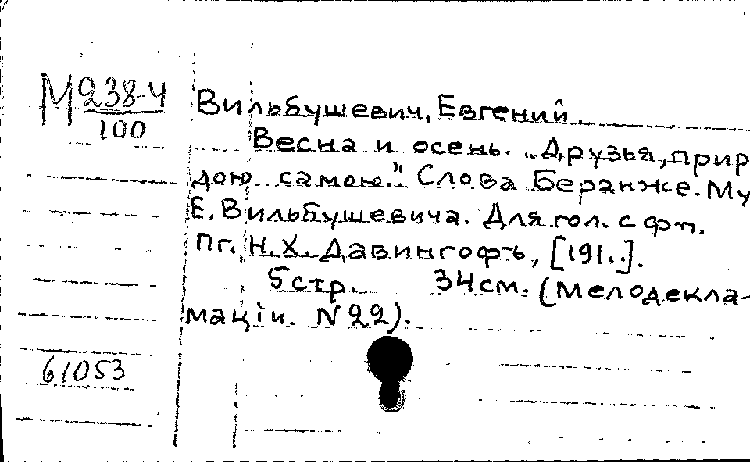 М238-4
100
Вильбушевич, Евгений.
Весна и осень. „Друзья, прир
дою самою." Слова Беранже. Му
Е. Вильбушевича. Для гол. с фп.
Пг. Н. Х. Давингофъ, [191..].
5 стр. 34 см. (Мелодекла-
маціи. N 22).
61053